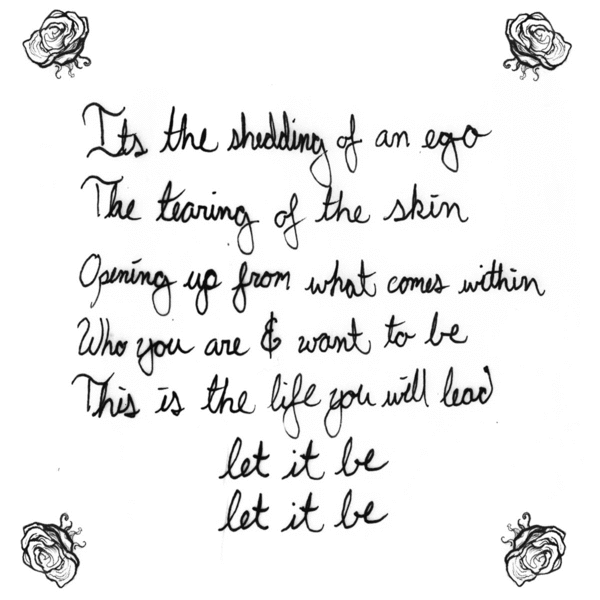 Its the shedding of an ego
The tearing of the skin
Opening up from what comes within
Who you are & want to be
This is the life you will lead
let it be
let it be